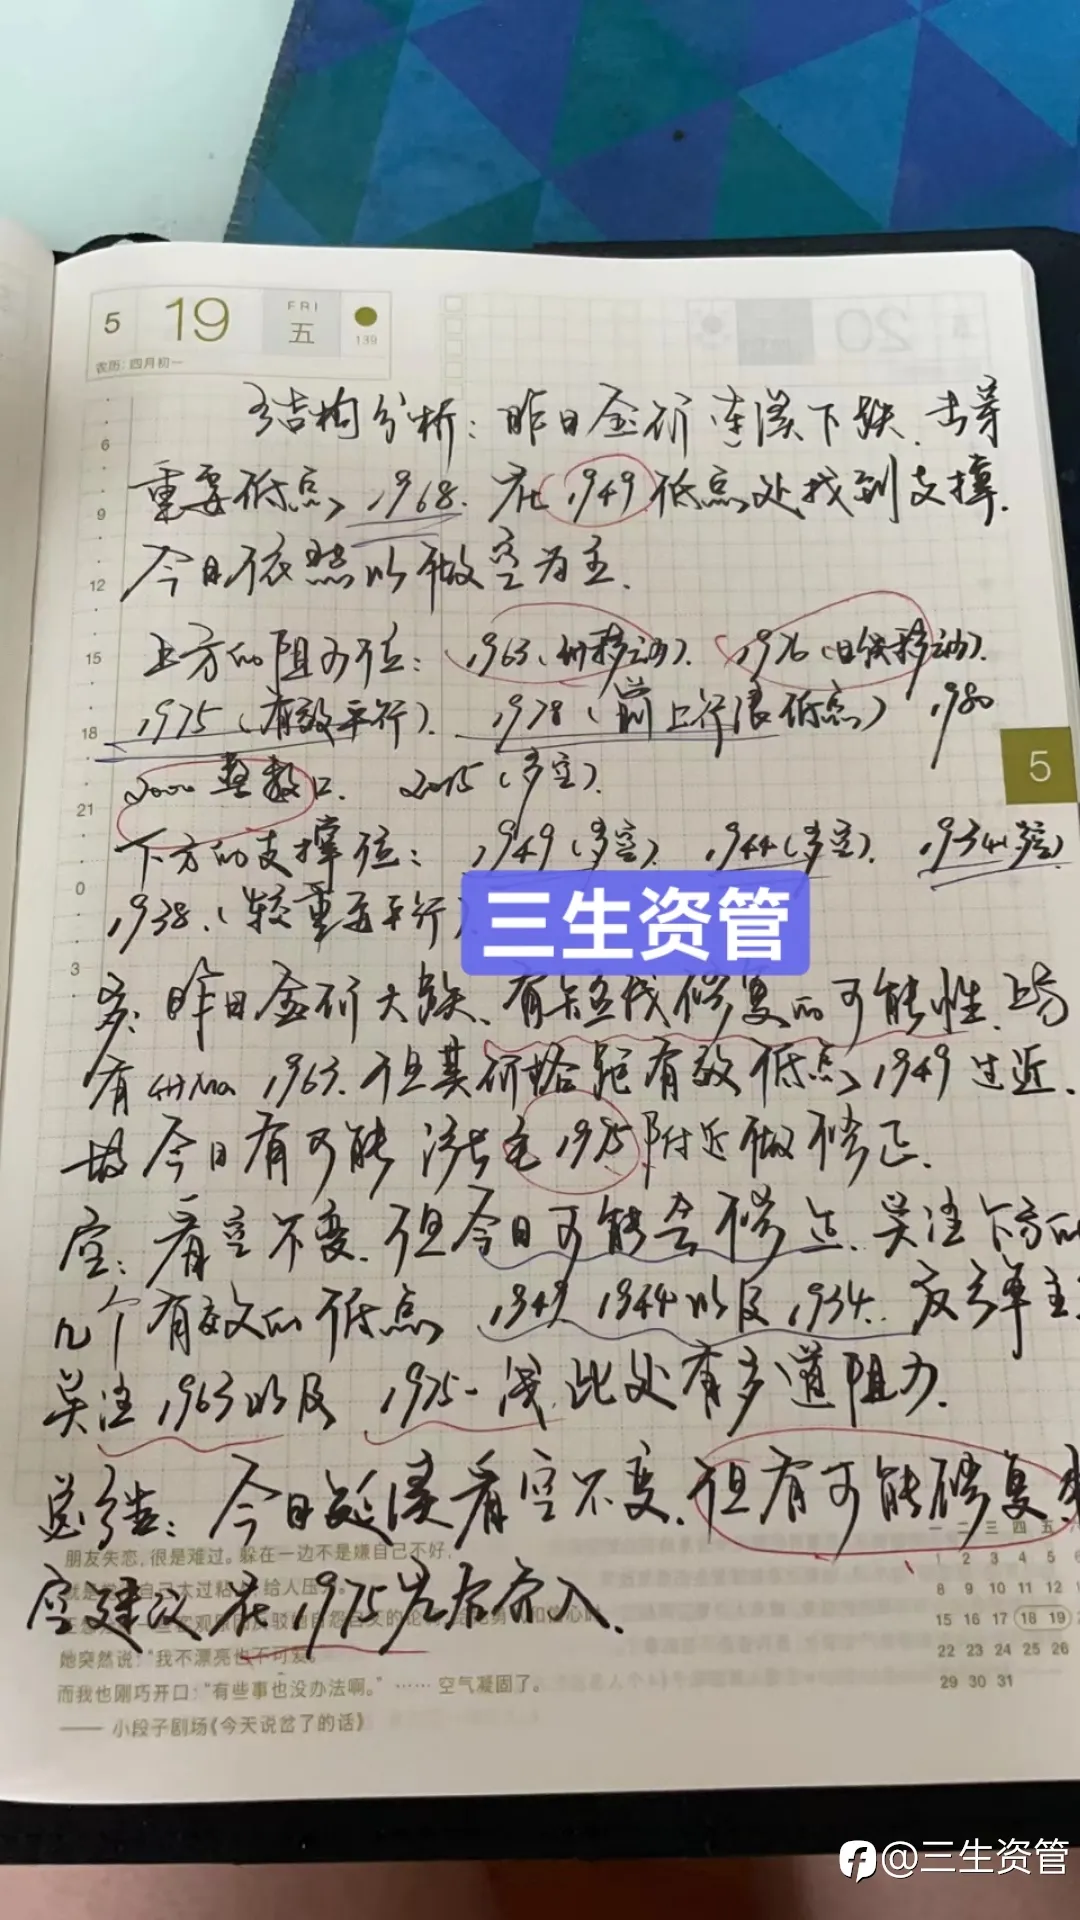 5 19 FRI 五 139
农历：四月初一
20
结构分析：昨日金价连续下跌.击穿
重要低点 1968. 在1949低点处找到支撑.
今日依照以做空为主.
上方的阻力位：1963(4h移动). 1976(日线移动).
1975(有效平行). 1978(前上行浪低点) 1980
2000整数口. 2015(多空).
下方的支撑位：1949(多空). 1944(多空). 1934(多空)
1938.(较重要平行)
三生资管
多：昨日金价大跌.有短线修复的可能性.上方
有4hMa 1963.但其价格距有效低点1949过近.
故今日有可能涨至1975附近做修正.
空：看空不变.但今日可能会修正.关注下方的
几个有效的低点 1949 1944以及1934.反弹主
关注1963以及1975一线.此处有多道阻力.
总结：今日延续看空不变.但有可能修复.
空建议在1975左右介入.
6
9
12
15
18
21
0
3
5
朋友失恋，很是难过。躲在一边不是嫌自己不好，
她突然说：“我不漂亮也不可爱。”
而我也刚巧开口：“有些事也没办法啊。”……空气凝固了。
—— 小段子剧场《今天说岔了的话》
一 二 三 四 五
1 2 3 4 5
8 9 10 11 12
15 16 17 18 19
22 23 24 25 26
29 30 31
@三生资管